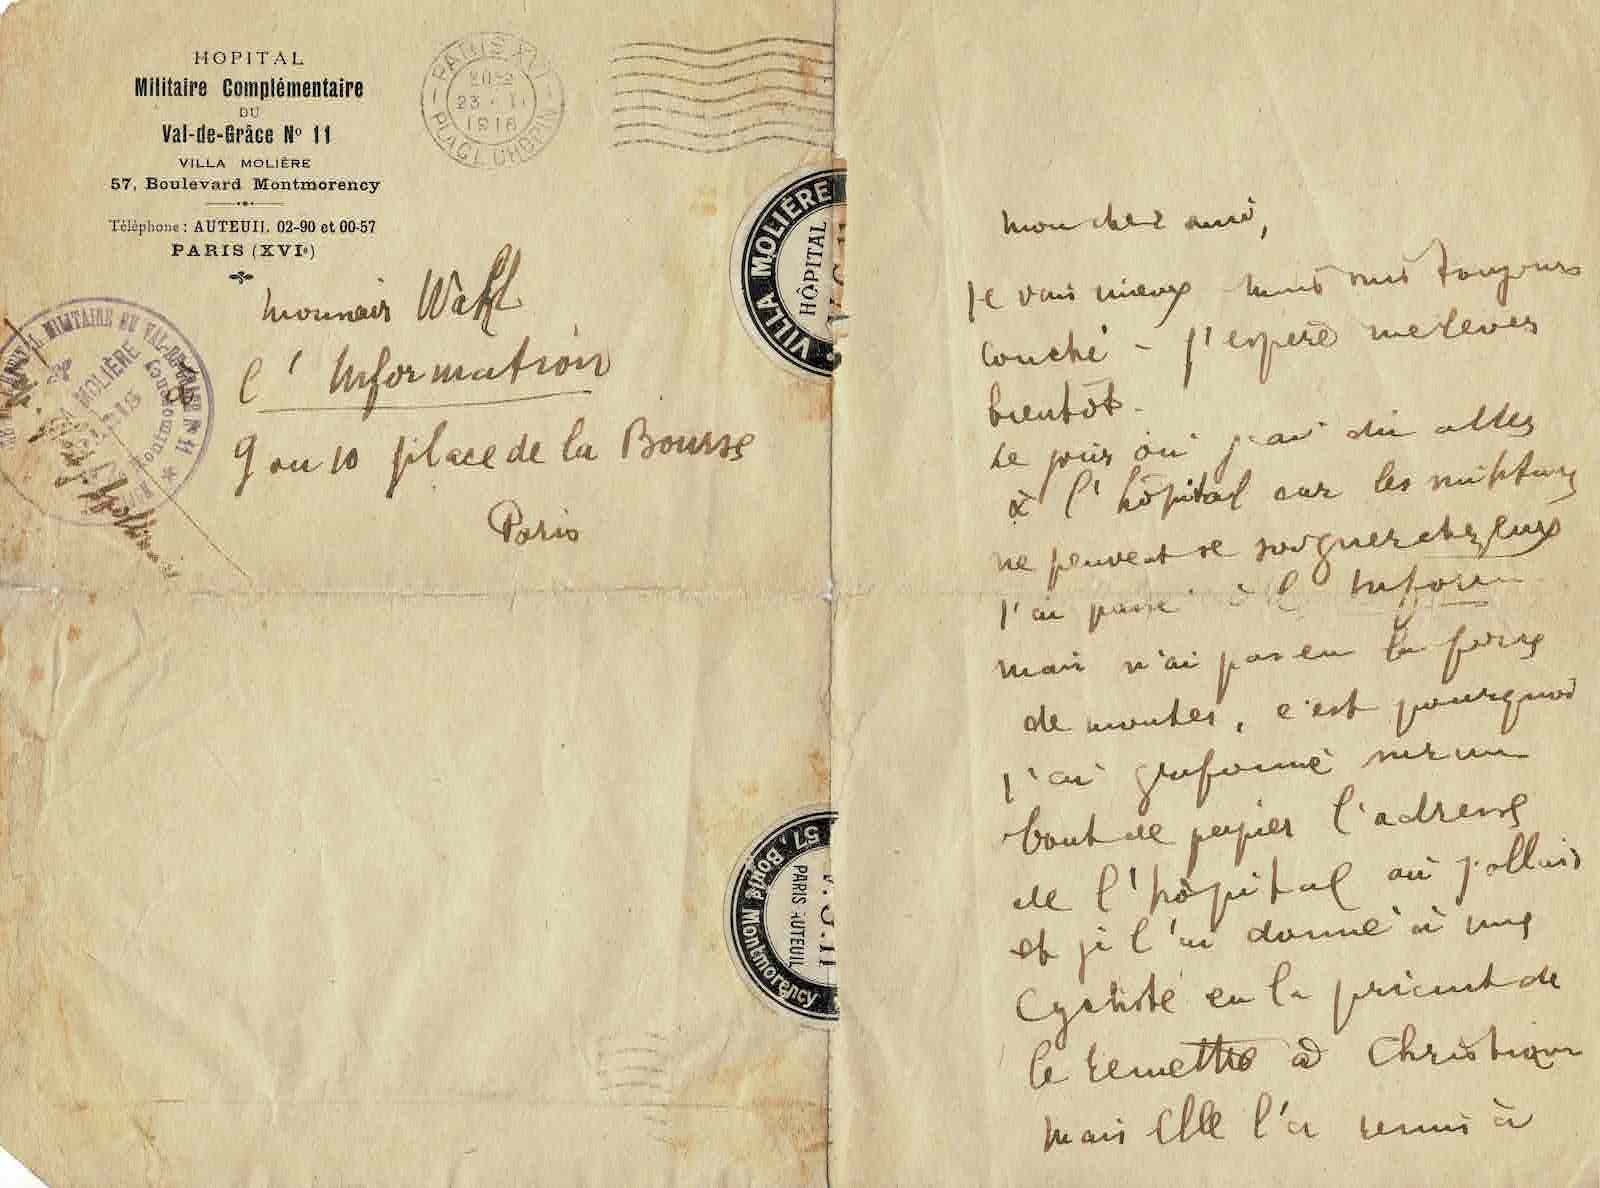 HOPITAL
Militaire Complémentaire
DU
Val-de-Grâce Nº 11
VILLA MOLIÈRE
57, Boulevard Montmorency
Téléphone : AUTEUIL 02-90 et 00-57
PARIS (XVIe)
PARIS XVI
23 · I
1918
PLACE CHOPIN
VILLA MOLIÈRE
HÔPITAL
MILITAIRE DU VAL-DE-GRACE Nº 11
MOLIÈRE
Monsieur Wahl
l'Information
9 ou 10 place de la Bourse
Paris
57, Boul'd Montmorency
PARIS AUTEUIL
Mon cher ami,
Je vais mieux mais suis toujours
couché - j'espère me lever
bientôt.
Le jour où j'ai dû aller
à l'hôpital car les militaires
ne peuvent se soigner chez eux
j'ai passé à l'Inform
mais n'ai pas eu la force
de monter, c'est pourquoi
j'ai griffonné sur un
bout de papier l'adresse
de l'hôpital où j'allais
et je l'ai donné à une
cycliste en la priant de
le remettre à Christian
mais elle l'a remis à